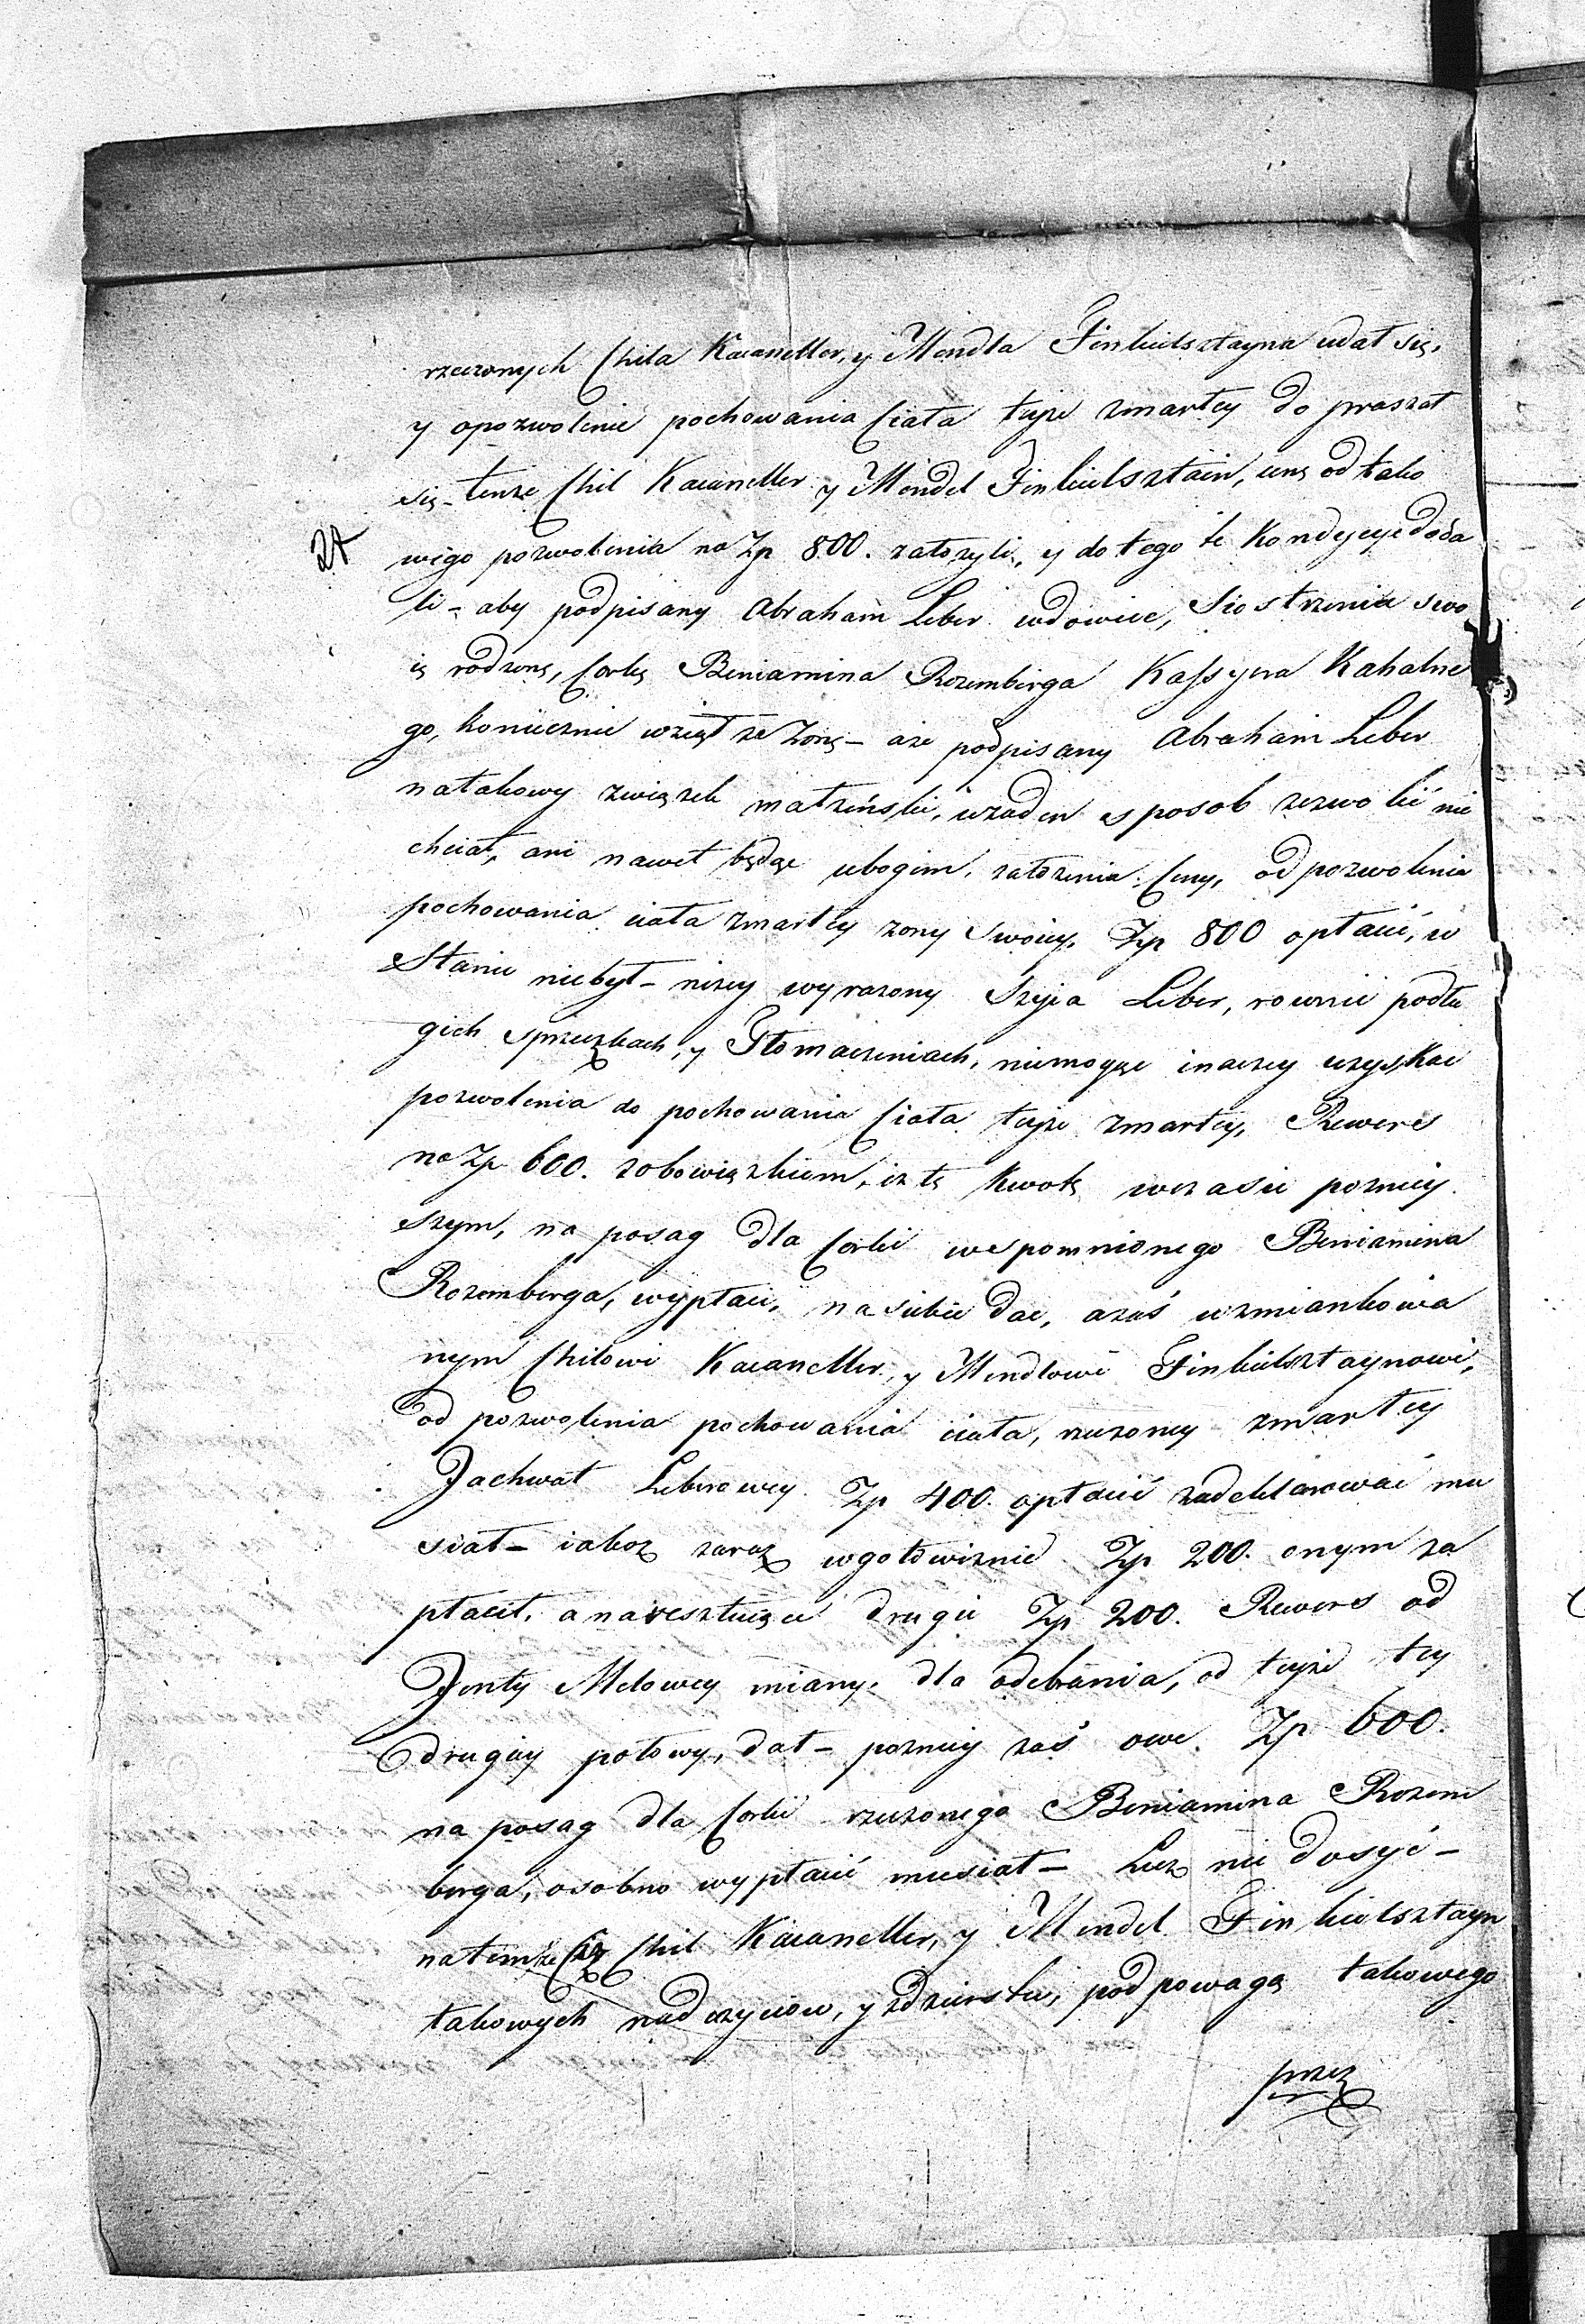 rzeczonych Chila Kacaneller, y Mendla Finkielsztayna udał się,
y opozwolenie pochowania Ciała teyże zmarłey do praszał
się – tenże Chil Kacaneller y Mendel Finkielsztain, cenę od tako
24 wego pozwolenia na Zp 800. założyli, y do tego te Kondycye doda
li – aby podpisany Abraham Leber wdowiec, Siostrzenia swo
ią rodzoną, Corkę Beniamina Rozemberga Kassyera Kahalne
go, koniecznie wziął za Zonę – aże podpisany Abraham Leber
natakowy związek małżeński, wżaden sposob zezwolić nie
chciał, ani nawet będąc ubogim, założenia Ceny, od pozwolenia
pochowania ciała zmarłey zony swoiey, Zp 800 opłacić, w
Stanie niebył – niżey wyrażony Szyja Leber, rownie podłu
gich sprzeczkach, y Tłomaczeniach, niemogąc inaczey uzyskac
pozwolenia do pochowania Ciała teyże zmarłey, Rewers
na Zp 600. zobowiązkiem, iż tę Kwotę wczasie pozniey
szym, na posag dla Corki wspomnionego Beniamina
Rozemberga, wypłaci, nasiebie dac, azaś wzmiankowa
nym Chilowi Kacaneller, y Mendlowi Finkielsztaynowi,
od pozwolenia pochowania ciała, rzeczoney zmarłey
Jachwat Leberowey Zp 400. opłacić zadeklarować mu
siał – iakoż zaraz wgotowiznie Zp 200. onym za
płacił, a naresztuiące drugie Zp 200. Rewers od
Jenty Melowey miany, dla odebrania, od teyże tey
drugiey połowy, dał – pozniey zaś owe Zp 600.
na posag dla Corki rzeczonego Beniamina Rozem
berga, osobno wypłacić musiał – Lecz nie dosyć –
natem że Chil Kacaneller, y Mendel Finkielsztayn
takowych nadużyciow, y zdzierstw, pod powagą takowego
przez